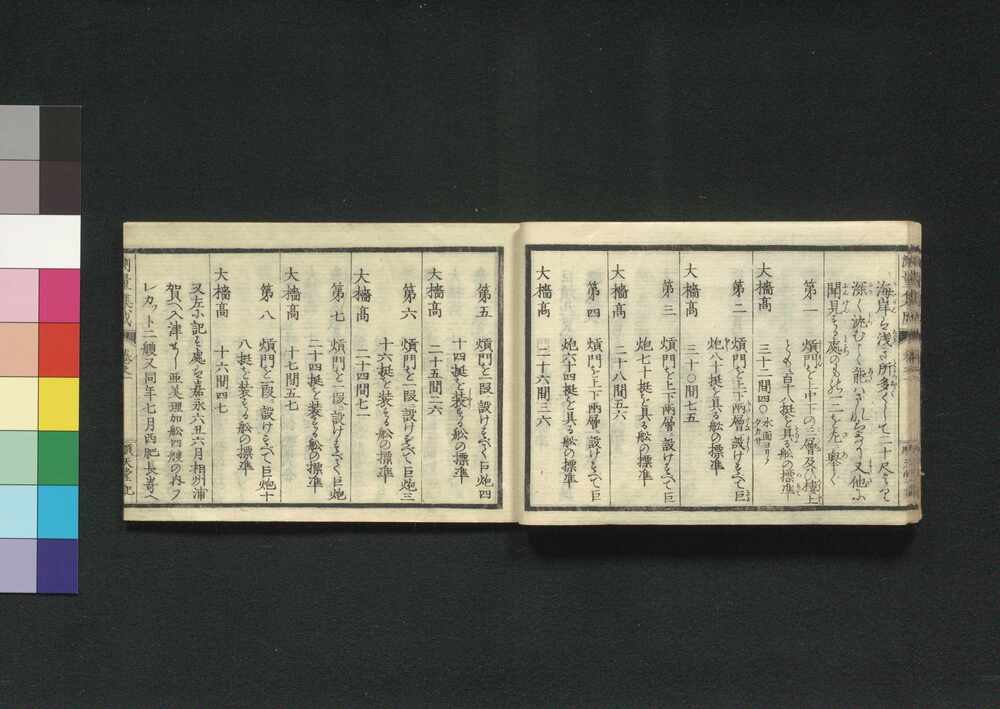 海岸は浅き所多くして二十尺より
深く沈むを能ハざれバなり又他ふ
聞見する處のもの一二を左ニ舉ぐ
第一 熕門を上中下の三層及ハ樓上
とも百十八挺を具る舩の標準
大檣高 三十二間四〇 水面ヨリノタカサ
第二 熕門を上下兩層ニ設けすべて巨
炮八十挺を具る舩の標準
大檣高 三十〇間七五
第三 熕門を上下兩層ニ設けすべて巨
炮七十挺を具る舩の標準
大檣高 二十八間五六
第四 熕門を上下兩層ニ設けすべて巨
炮六十四挺を具る舩の標準
大檣高 二十六間三六
第五 熕門を一段ニ設けすべて巨炮四
十四挺を装する舩の標準
大檣高 二十五間二六
第六 熕門を一段ニ設けすべて巨炮三
十六挺を装する舩の標準
大檣高 二十四間七一
第七 熕門を一段ニ設けすべて巨炮
二十四挺を装する舩の標準
大檣高 十七間五七
第八 熕門を一段ニ設けすべて巨炮十
八挺を装する舩の標準
大檣高 十六間四七
又左ニ記す處は嘉永六丑六月相州浦
賀へ入津せし亜美理加舩四艘の内フ
レカット二艘又同年七月西肥長嵜へ